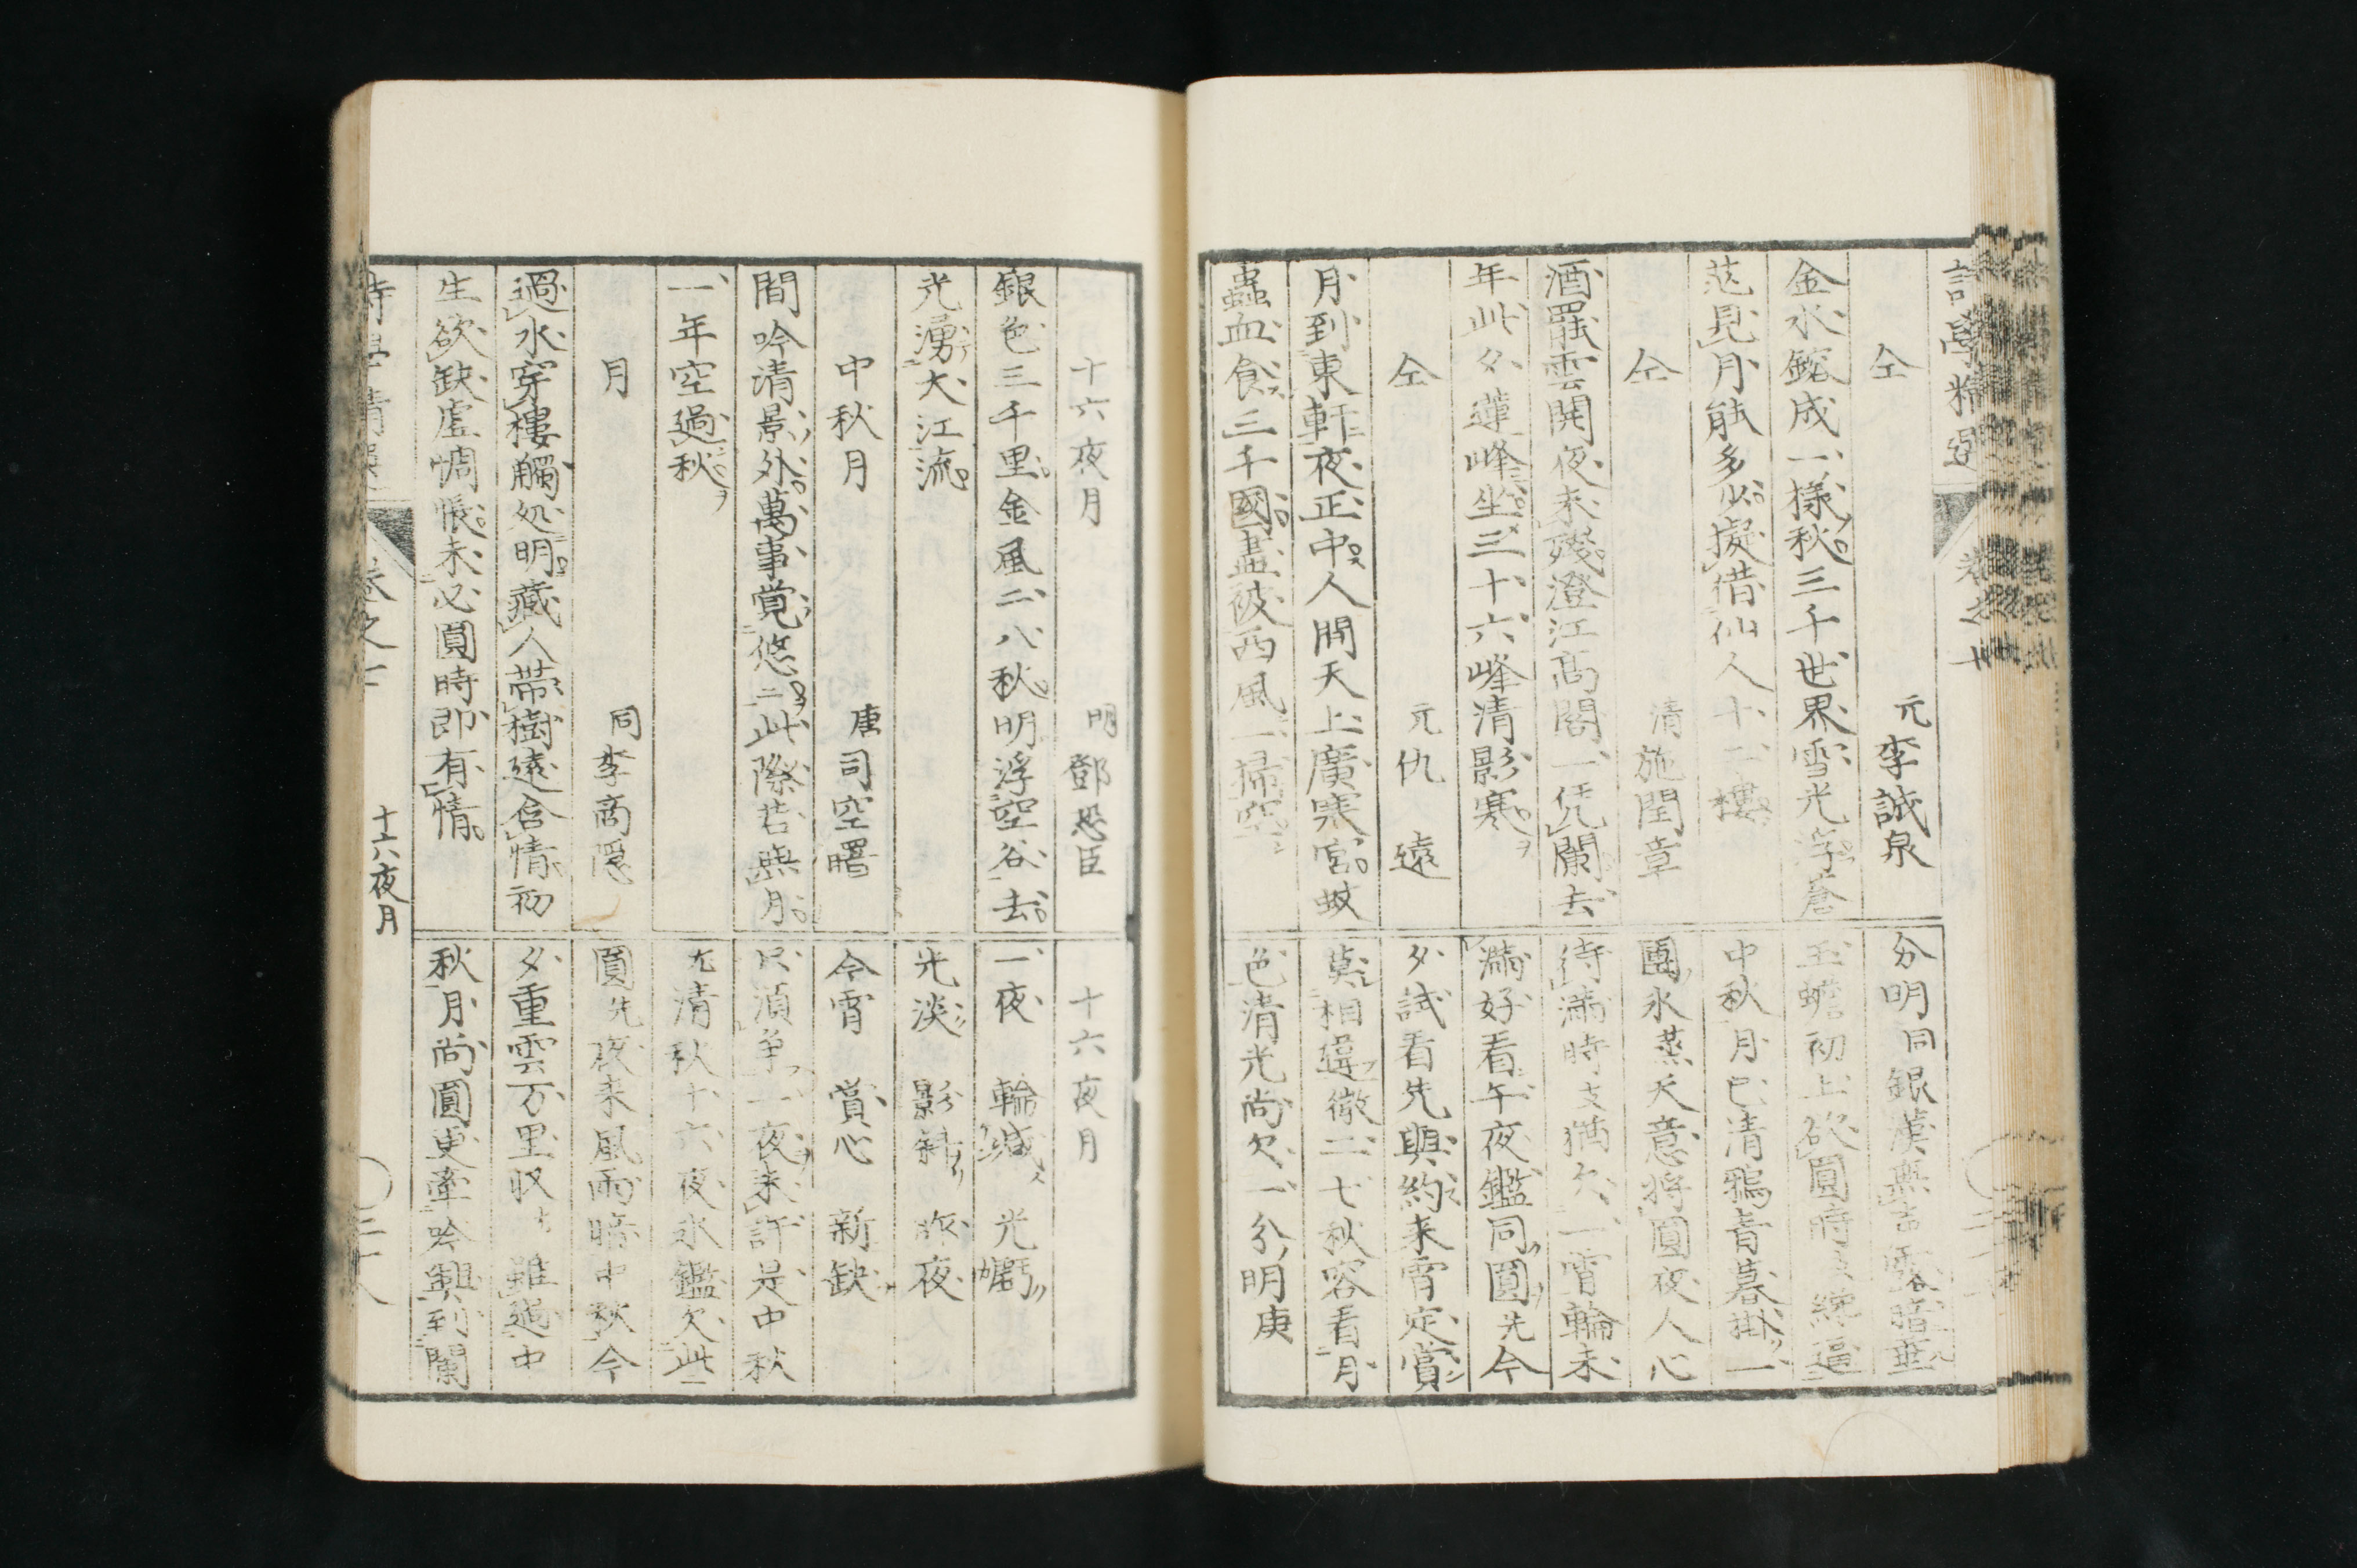 仝 元 李誠泉
金水鎔成一樣秋三千世界雪光浮蒼
茫見月能多少擬借仙人十二樓
仝 清 施閏章
酒罷雲開夜未殘澄江高閣一凭闌去
年此夕蓮峰坐三十六峰清影寒
仝 元 仇遠
月到東軒夜正中人間天上廣寒宮蚊
蟲血食三千國盡被西風一掃空
分明 同 銀漢無声露暗垂
玉蟾初上欲圓時
中秋月已清鴉青幕掛一
團氷 蒸 天意將圓夜人心
待滿時支猶欠一宵輪未
滿好看午夜鑑同圓 先今
夕試看先與約来宵定賞
莫相違 徵 二七秋容看月
色清光尚欠一分明 庚
十六夜月 明 鄧恐臣
銀色三千里金風二八秋明浮空谷去
光湧大江流
中秋月 唐 司空曙
間吟清景外萬事覚悠二此際若無月
一年空過秋
月 同 李商隠
過水穿樓觸処明藏人帯樹遠含情初
生欲缺虚惆悵未必圓時即有情
十六夜月
一夜 輪減 光虧
光淡 影斜 昨夜
今宵 賞心 新缺
只須争一夜来許是中秋
尤 清秋十六夜氷鑑欠些
圓 先 夜来風雨暗中秋今
夕重雲万里収 尤 雖過中
秋月尚圓更牽吟興到闌
十六夜月